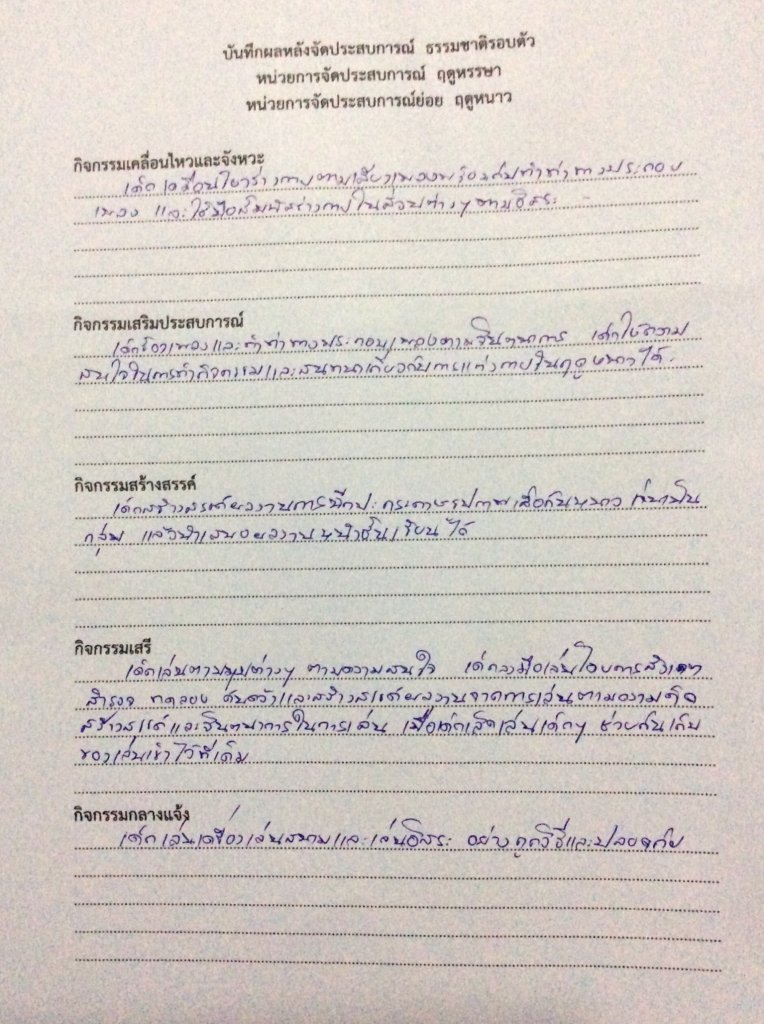 บันทึกผลหลังจัดประสบการณ์ ธรรมชาติรอบตัว
หน่วยการจัดประสบการณ์ ฤดูหรรษา
หน่วยการจัดประสบการณ์ย่อย ฤดูหนาว
กิจกรรมเคลื่อนไหวและจังหวะ
เด็กเคลื่อนไหวร่างกายตามเสียงเพลงพร้อมกับทำท่าทางประกอบ
เพลง และใช้มือสัมผัสร่างกายในส่วนต่างๆตามอิสระ
กิจกรรมเสริมประสบการณ์
เด็กร้องเพลงและทำท่าทางประกอบเพลงตามจินตนาการ เด็กให้ความ
สนใจในการทำกิจกรรมและสนทนาเกี่ยวกับการแต่งกายในฤดูหนาวได้
กิจกรรมสร้างสรรค์
เด็กสร้างสรรค์ผลงานการฉีกปะกระดาษรูปภาพเสื้อกันหนาว เป็น
กลุ่ม แล้วนำเสนอผลงานหน้าชั้นเรียนได้
กิจกรรมเสรี
เด็กเล่นตามมุมต่างๆ ตามความสนใจ เด็กลงมือเล่นโดยการสังเกต
สำรวจ ทดลอง ค้นคว้าและสร้างสรรค์ผลงานจากการเล่นตามความคิด
สร้างสรรค์และจินตนาการในการเล่น เมื่อเด็กเลิกเล่นเด็กๆ ช่วยกันเก็บ
ของเล่นเข้าไว้ที่เดิม
กิจกรรมกลางแจ้ง
เด็กเล่นเครื่องเล่นสนามและเล่นอิสระ อย่างถูกวิธีและปลอดภัย